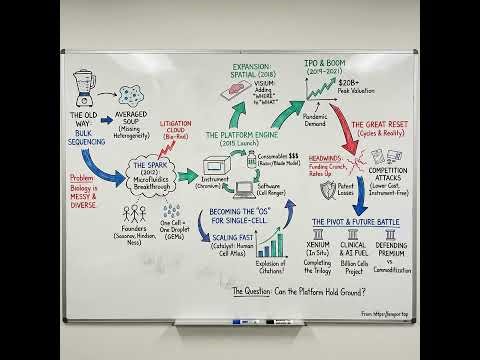 THE OLD
WAY:
BULK
SEQUENCING
AVERAGED
SOUP
(Missing
Heterogeneity)
Problem
Biology is
MESSY &
DIVERSE
LITIGATION
CLOUD
(Bio-Rad)
THE SPARK
(2012)
Microfluidics
Breakthrough
Founders
(Saxonov, Hindson,
Ness)
One Cell =
One Droplet
(GEMs)
EXPANSION:
SPATIAL (2018)
VISIUM:
Adding
"WHERE"
to "WHAT"
THE PLATFORM ENGINE
(2015 Launch)
Instrument
(Chromium)
Consumables $$$
(Razor/Blade Model)
Software
(Cell Ranger)
BECOMING THE "OS"
FOR SINGLE-CELL
SCALING FAST
(Catalyst: Human
Cell Atlas)
Explosion of
Citations!
IPO & BOOM
(2019-2021)
$20B+
Peak Valuation
Pandemic
Demand
THE GREAT RESET
(Cycles & Reality)
HEADWINDS:
Funding Crunch,
Rates Up
Patent
Losses
COMPETITION
ATTACKS
(Lower Cost,
Instrument-Free)
THE PIVOT & FUTURE BATTLE
XENIUM
(In Situ)
Completing
the Trilogy
CLINICAL
& AI FUEL
Billion Cells
Project
DEFENDING
PREMIUM
vs
Commoditization
The Question: Can the Platform Hold Ground?